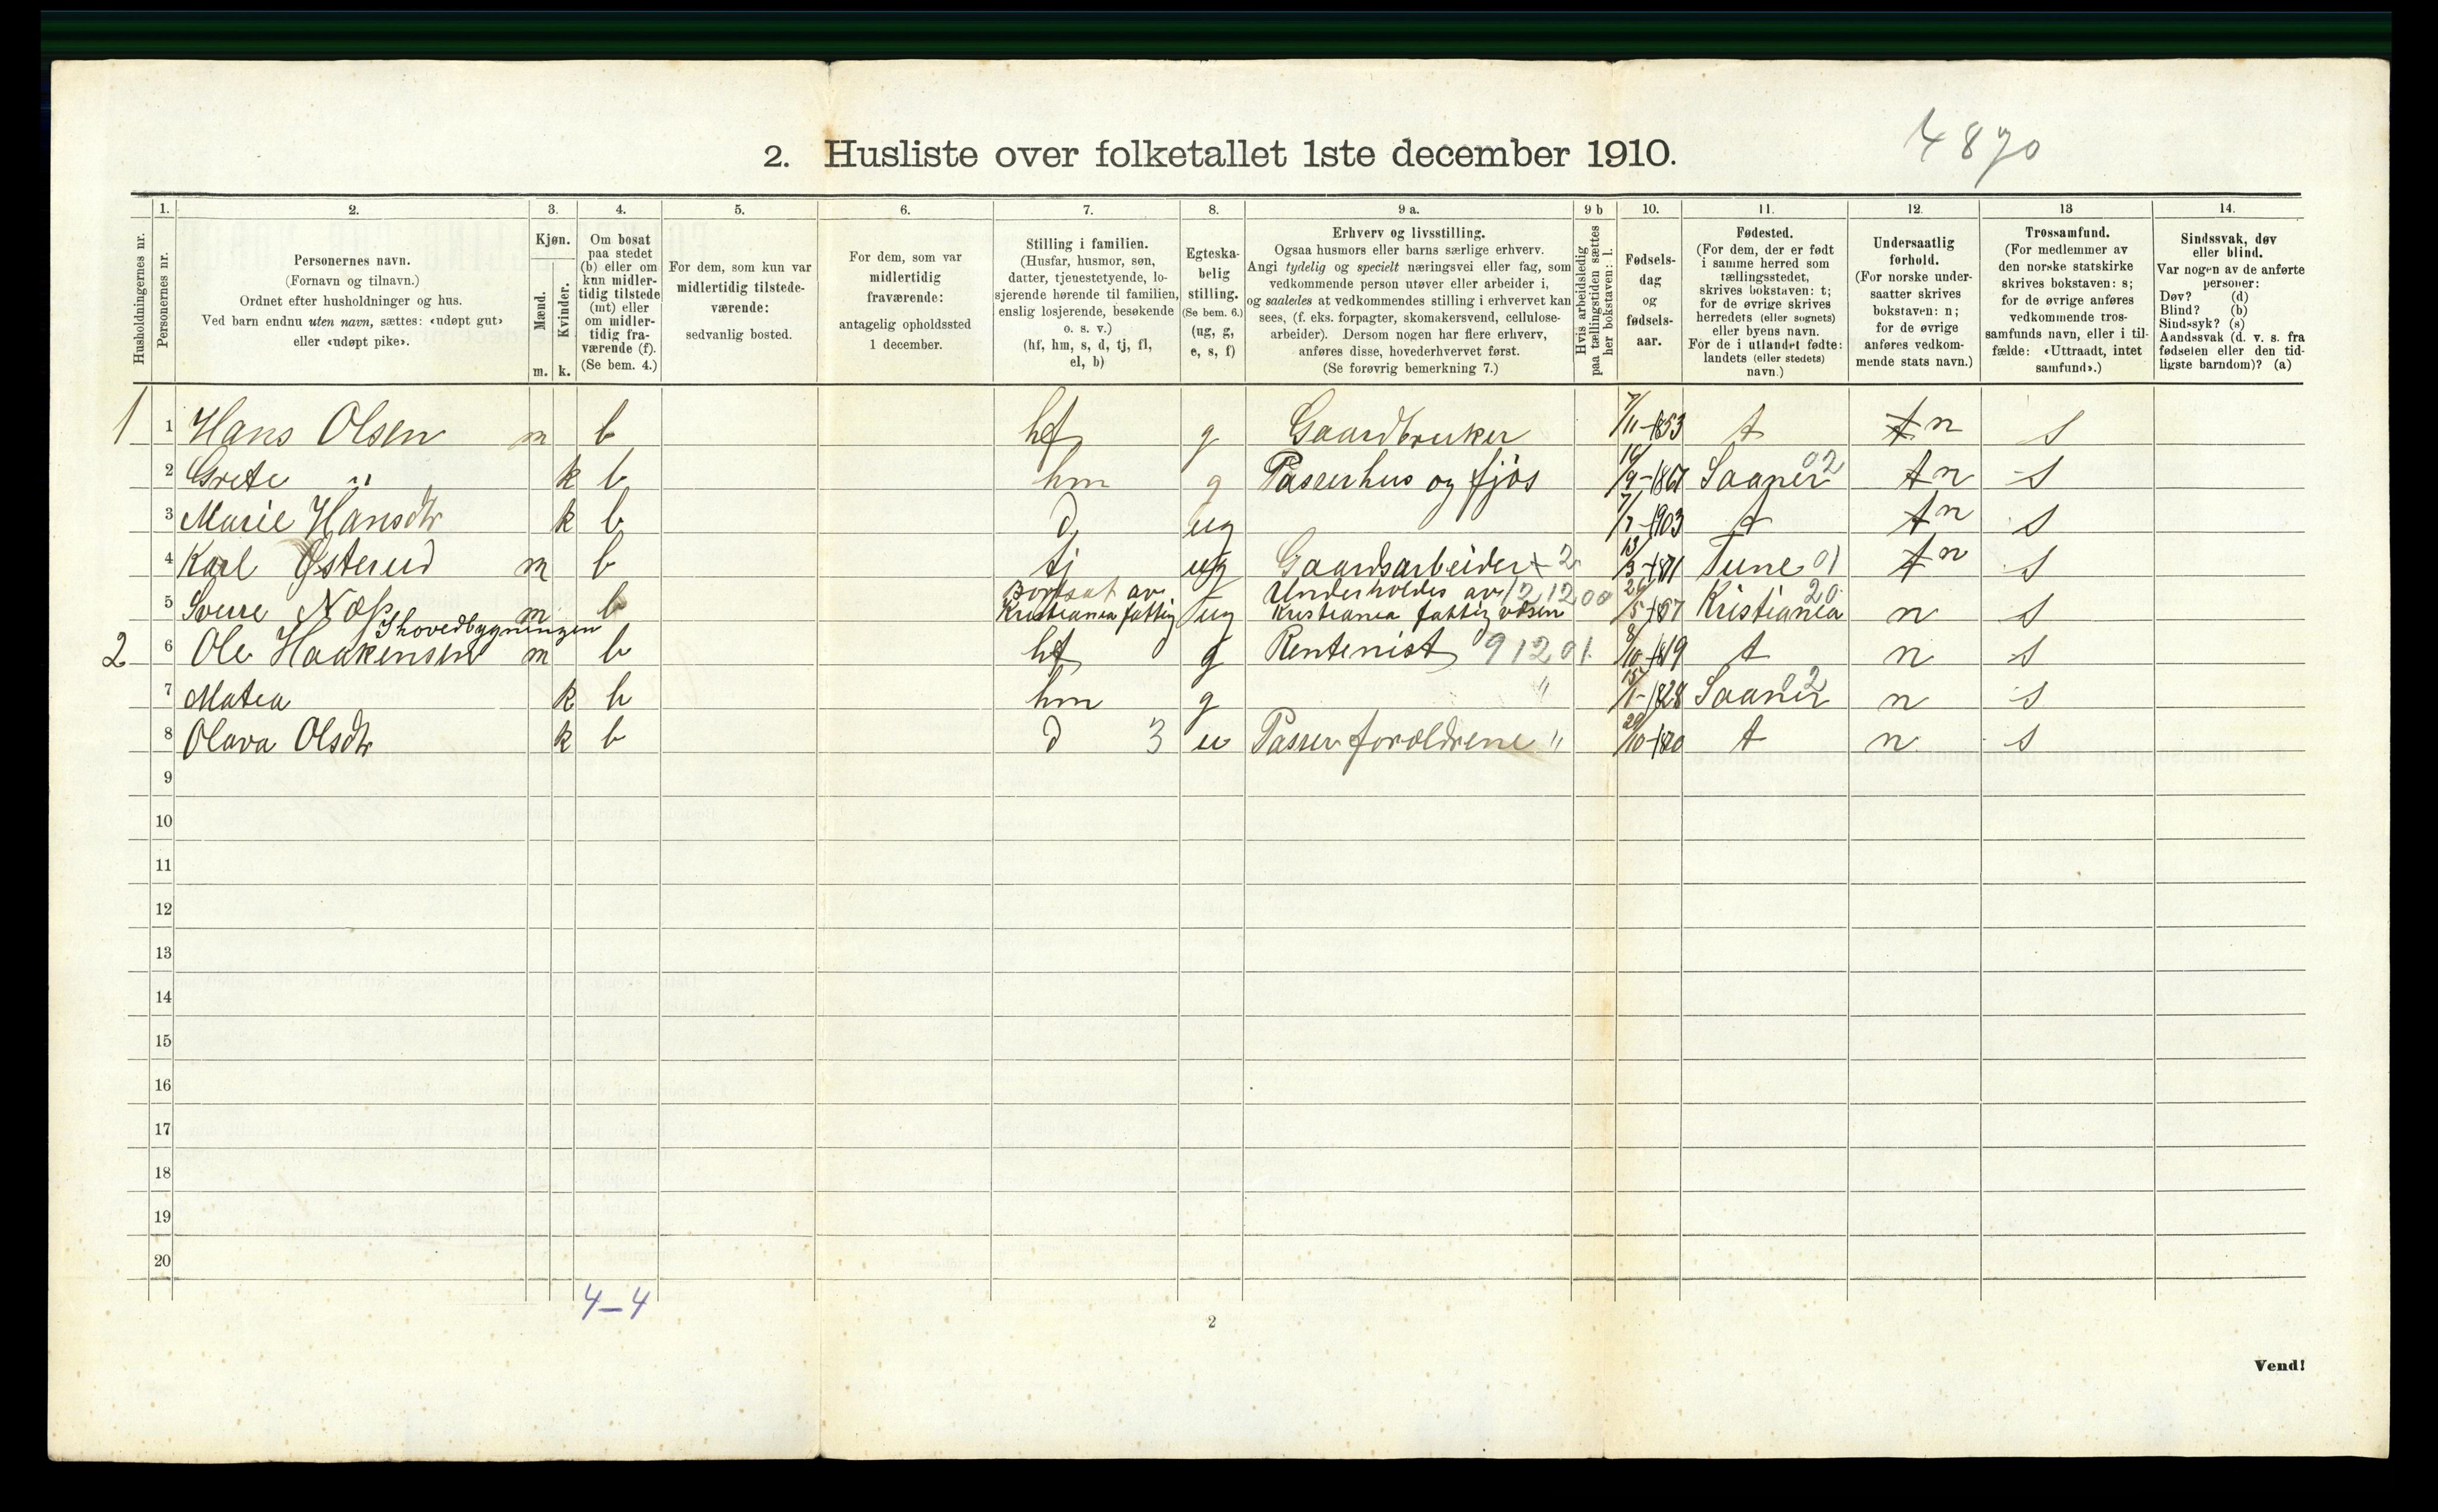 4870
2. Husliste over folketallet 1ste december 1910.
1. 2. 3. 4. 5. 6. 7. 8. 9 a. 9 b 10. 11. 12. 13 14.
Husholdningernes nr.
Personernes nr.
Personernes navn.
(Fornavn og tilnavn.)
Ordnet efter husholdninger og hus.
Ved barn endnu uten navn, sættes: «udøpt gut»
eller «udøpt pike».
Kjøn.
Mænd.
Kvinder.
m. k.
Om bosat
paa stedet
(b) eller om
kun midler-
tidig tilstede
(mt) eller
om midler-
tidig fra-
værende (f).
(Se bem. 4.)
For dem, som kun var
midlertidig tilstede-
værende:
sedvanlig bosted.
For dem, som var
midlertidig
fraværende:
antagelig opholdssted
1 december.
Stilling i familien.
(Husfar, husmor, søn,
datter, tjenestetyende, lo-
sjerende hørende til familien,
enslig losjerende, besøkende
o. s. v.)
(hf, hm, s, d, tj, fl,
el, b)
Egteska-
belig
stilling.
(Se bem. 6.)
(ug, g,
e, s, f)
Erhverv og livsstilling.
Ogsaa husmors eller barns særlige erhverv.
Angi tydelig og specielt næringsvei eller fag, som
vedkommende person utøver eller arbeider i,
og saaledes at vedkommendes stilling i erhvervet kan
sees, (f. eks. forpagter, skomakersvend, cellulose-
arbeider). Dersom nogen har flere erhverv,
anføres disse, hovederhvervet først.
(Se forøvrig bemerkning 7.)
Hvis arbeidsledig
paa tællingstiden sættes
her bokstaven: l.
Fødsels-
dag
og
fødsels-
aar.
Fødested.
(For dem, der er født
i samme herred som
tællingsstedet,
skrives bokstaven: t;
for de øvrige skrives
herredets (eller sognets)
eller byens navn.
For de i utlandet fødte:
landets (eller stedets)
navn.)
Undersaatlig
forhold.
(For norske under-
saatter skrives
bokstaven: n;
for de øvrige
anføres vedkom-
mende stats navn.)
Trossamfund.
(For medlemmer av
den norske statskirke
skrives bokstaven: s;
for de øvrige anføres
vedkommende tros-
samfunds navn, eller i til-
fælde: «Uttraadt, intet
samfund».)
Sindssvak, døv
eller blind.
Var nogen av de anførte
personer:
Døv? (d)
Blind? (b)
Sindssyk? (s)
Aandssvak (d. v. s. fra
fødselen eller den tid-
ligste barndom)? (a)
1 1 Hans Olsen m b hf g Gaardbruker 7/11-1853 t t n s
2 Grete " k b hm g Passer hus og fjøs Saaner 02 t n s
3 Marie Hansdtr k b d ug t t n s
4 Karl Østerud m b tj ug Gaardsarbeider 2 Tune 01 t n s
5 Sverre Næss m b Bortsat av Kristiania fattig ug Underholdes av Kristiania fattigvæsen 121200 Kristiania 20 n s
I hovedbygningen
2 6 Ole Haakensen m b hf g Rentenist 91201 8/10-1819 t n s
7 Matea k b hm g " 15/1-1828 Saaner 02 n s
8 Olava Olsdtr k b d 3 u Passer forældrene " t n s
9
10
11
12
13
14
15
16
17
18
19
20
4-4
2
Vend!